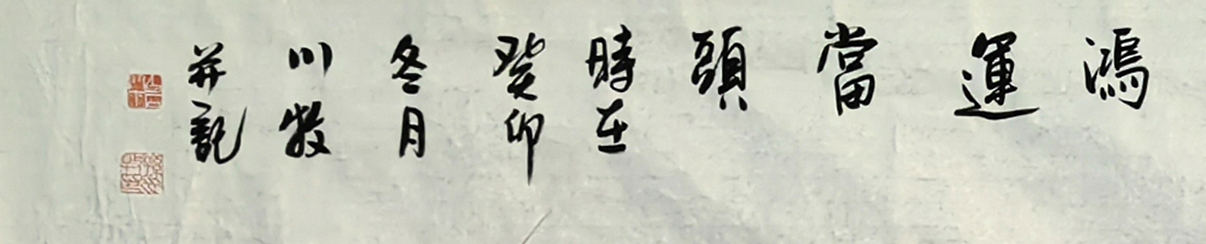 鴻
運
當
頭
時在
癸卯
冬月
川牧
并記